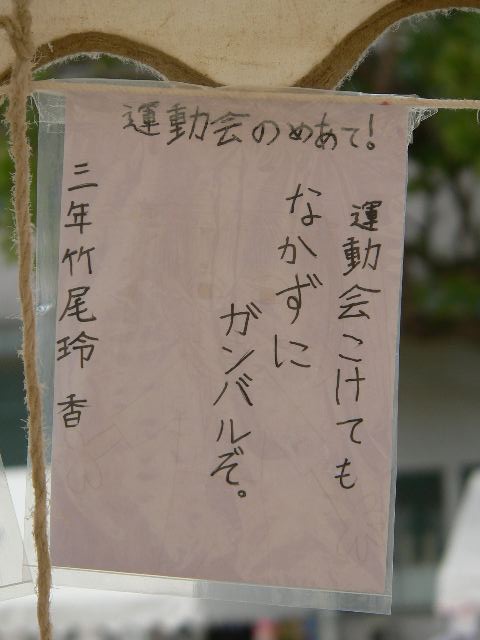 運動会のめあて!
運動会こけても
なかずに
ガンバルぞ。
三年竹尾玲香